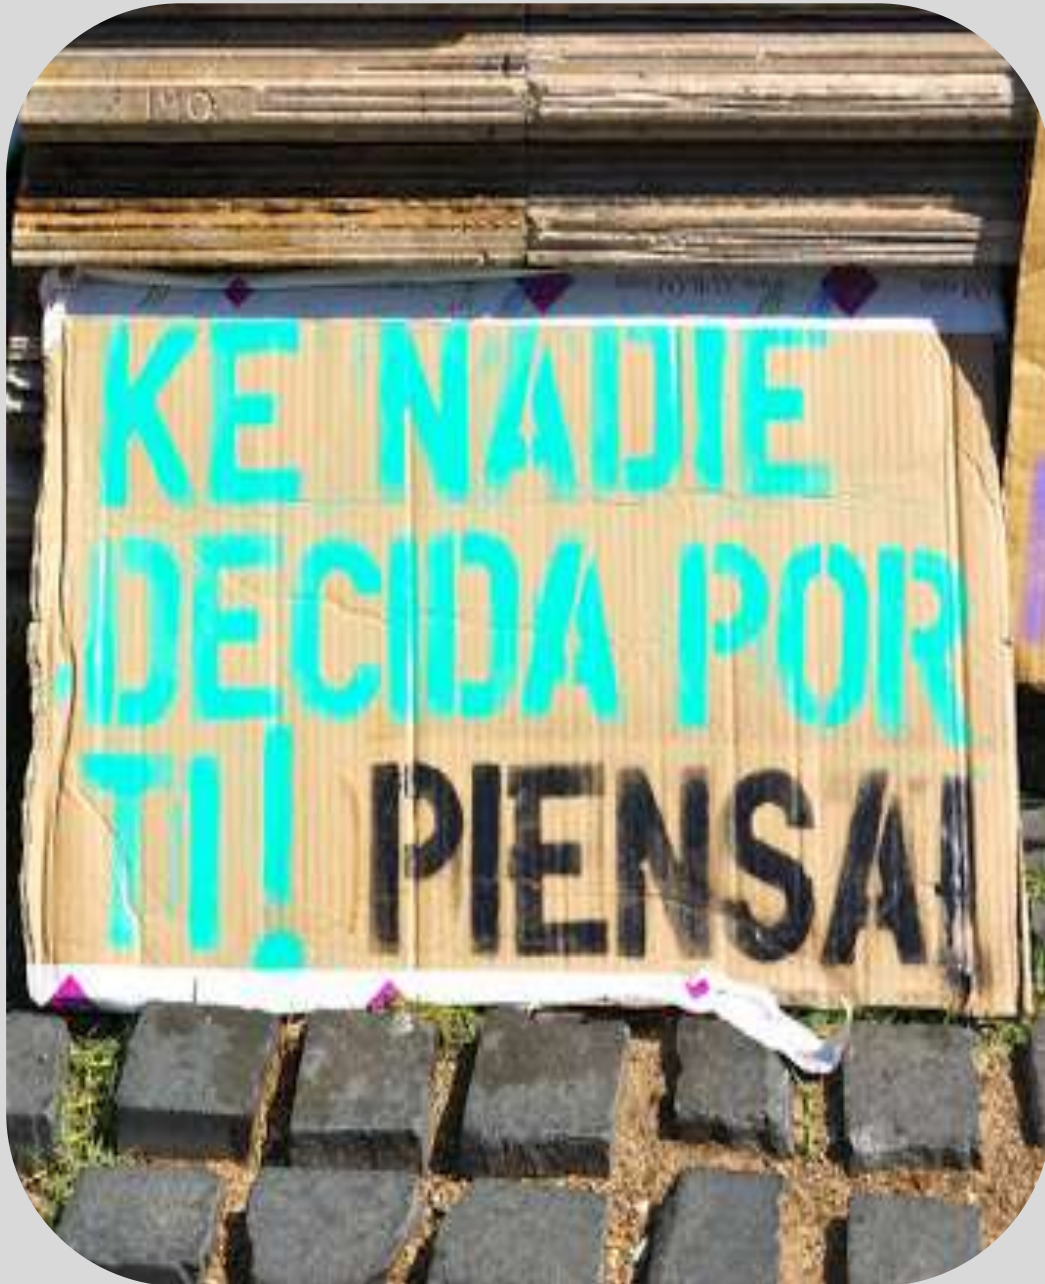 KE NADIE
DECIDA POR
TI! PIENSA!